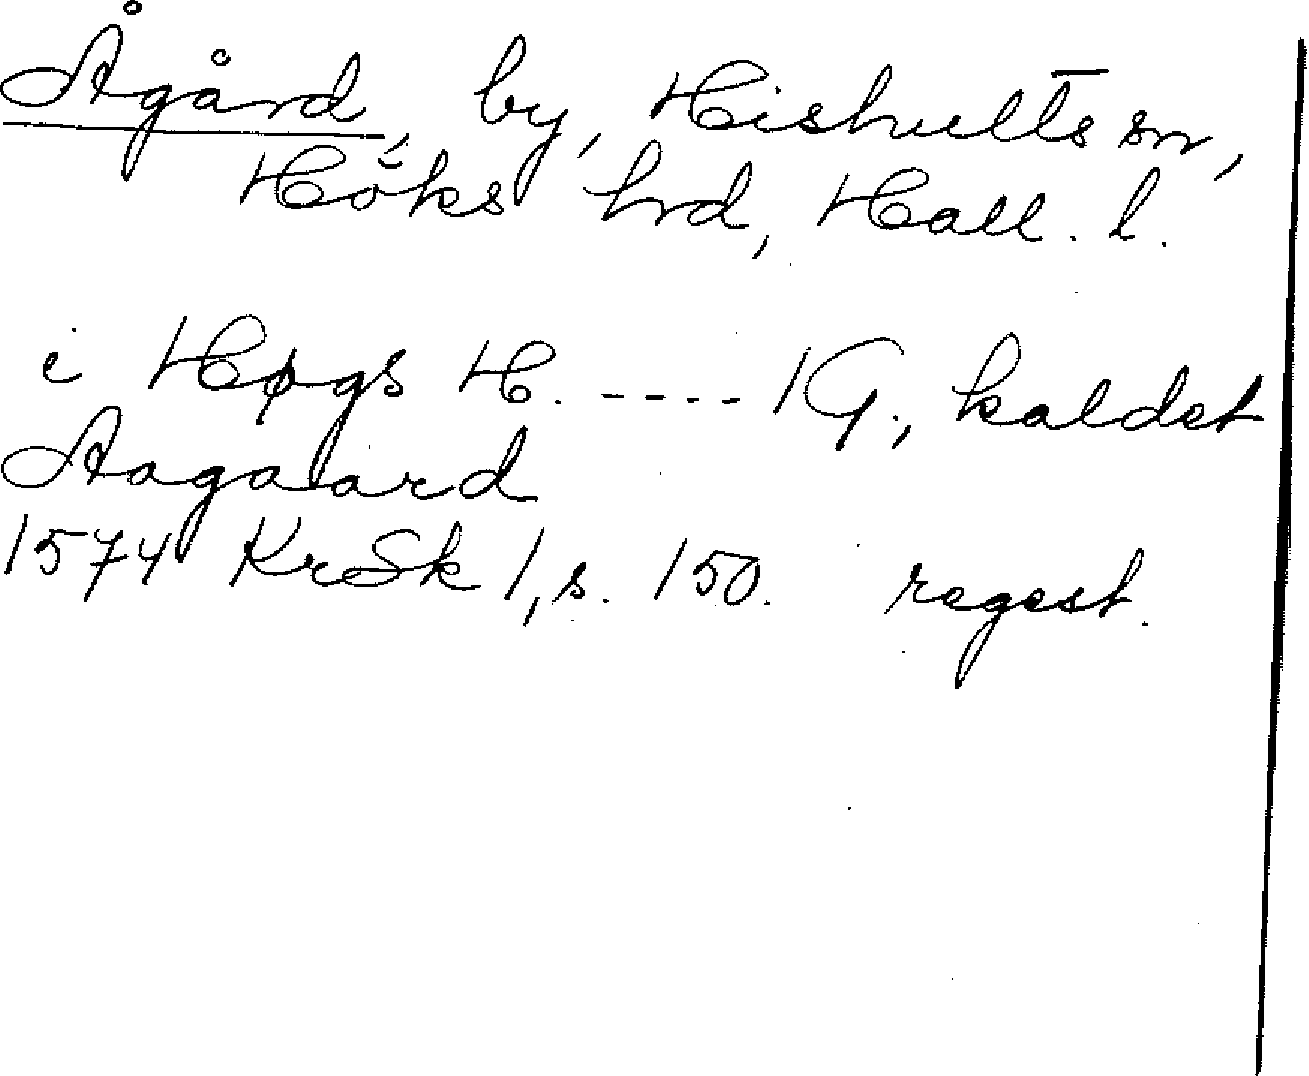 Ågård, by, Hishults sn,
Höks hrd, Hall. l.
i Høgs H. ---- 1 G., kaldet
Aagaard
1574 KrSk 1, s. 150. regest.